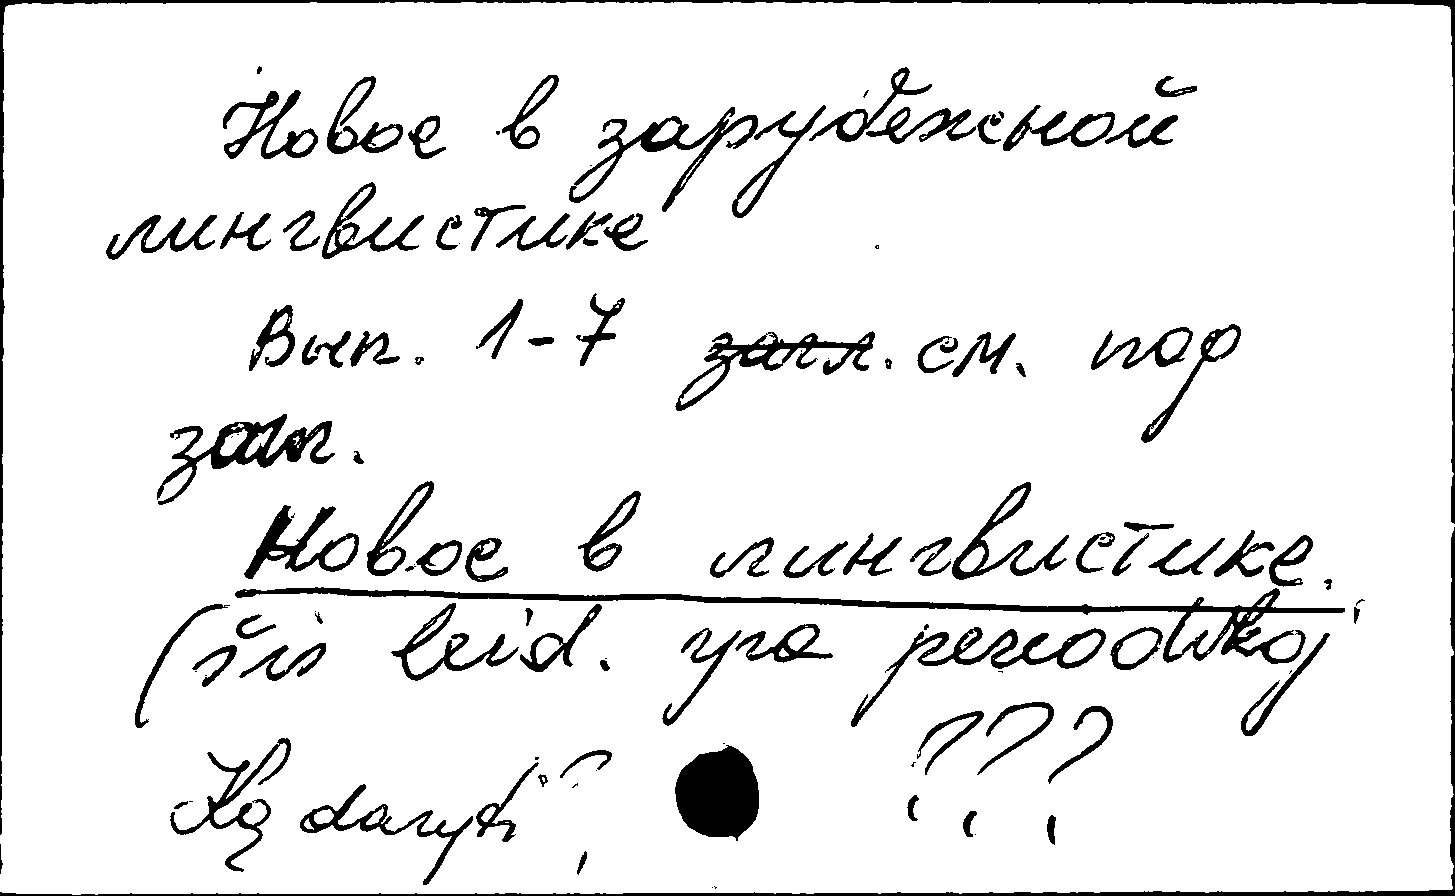 Новое в зарубежной
лингвистике
Вып. 1-7 загл. см. под
загл.
Новое в лингвистике.
(šis leid. yra periodikoj
Ką daryti? ???